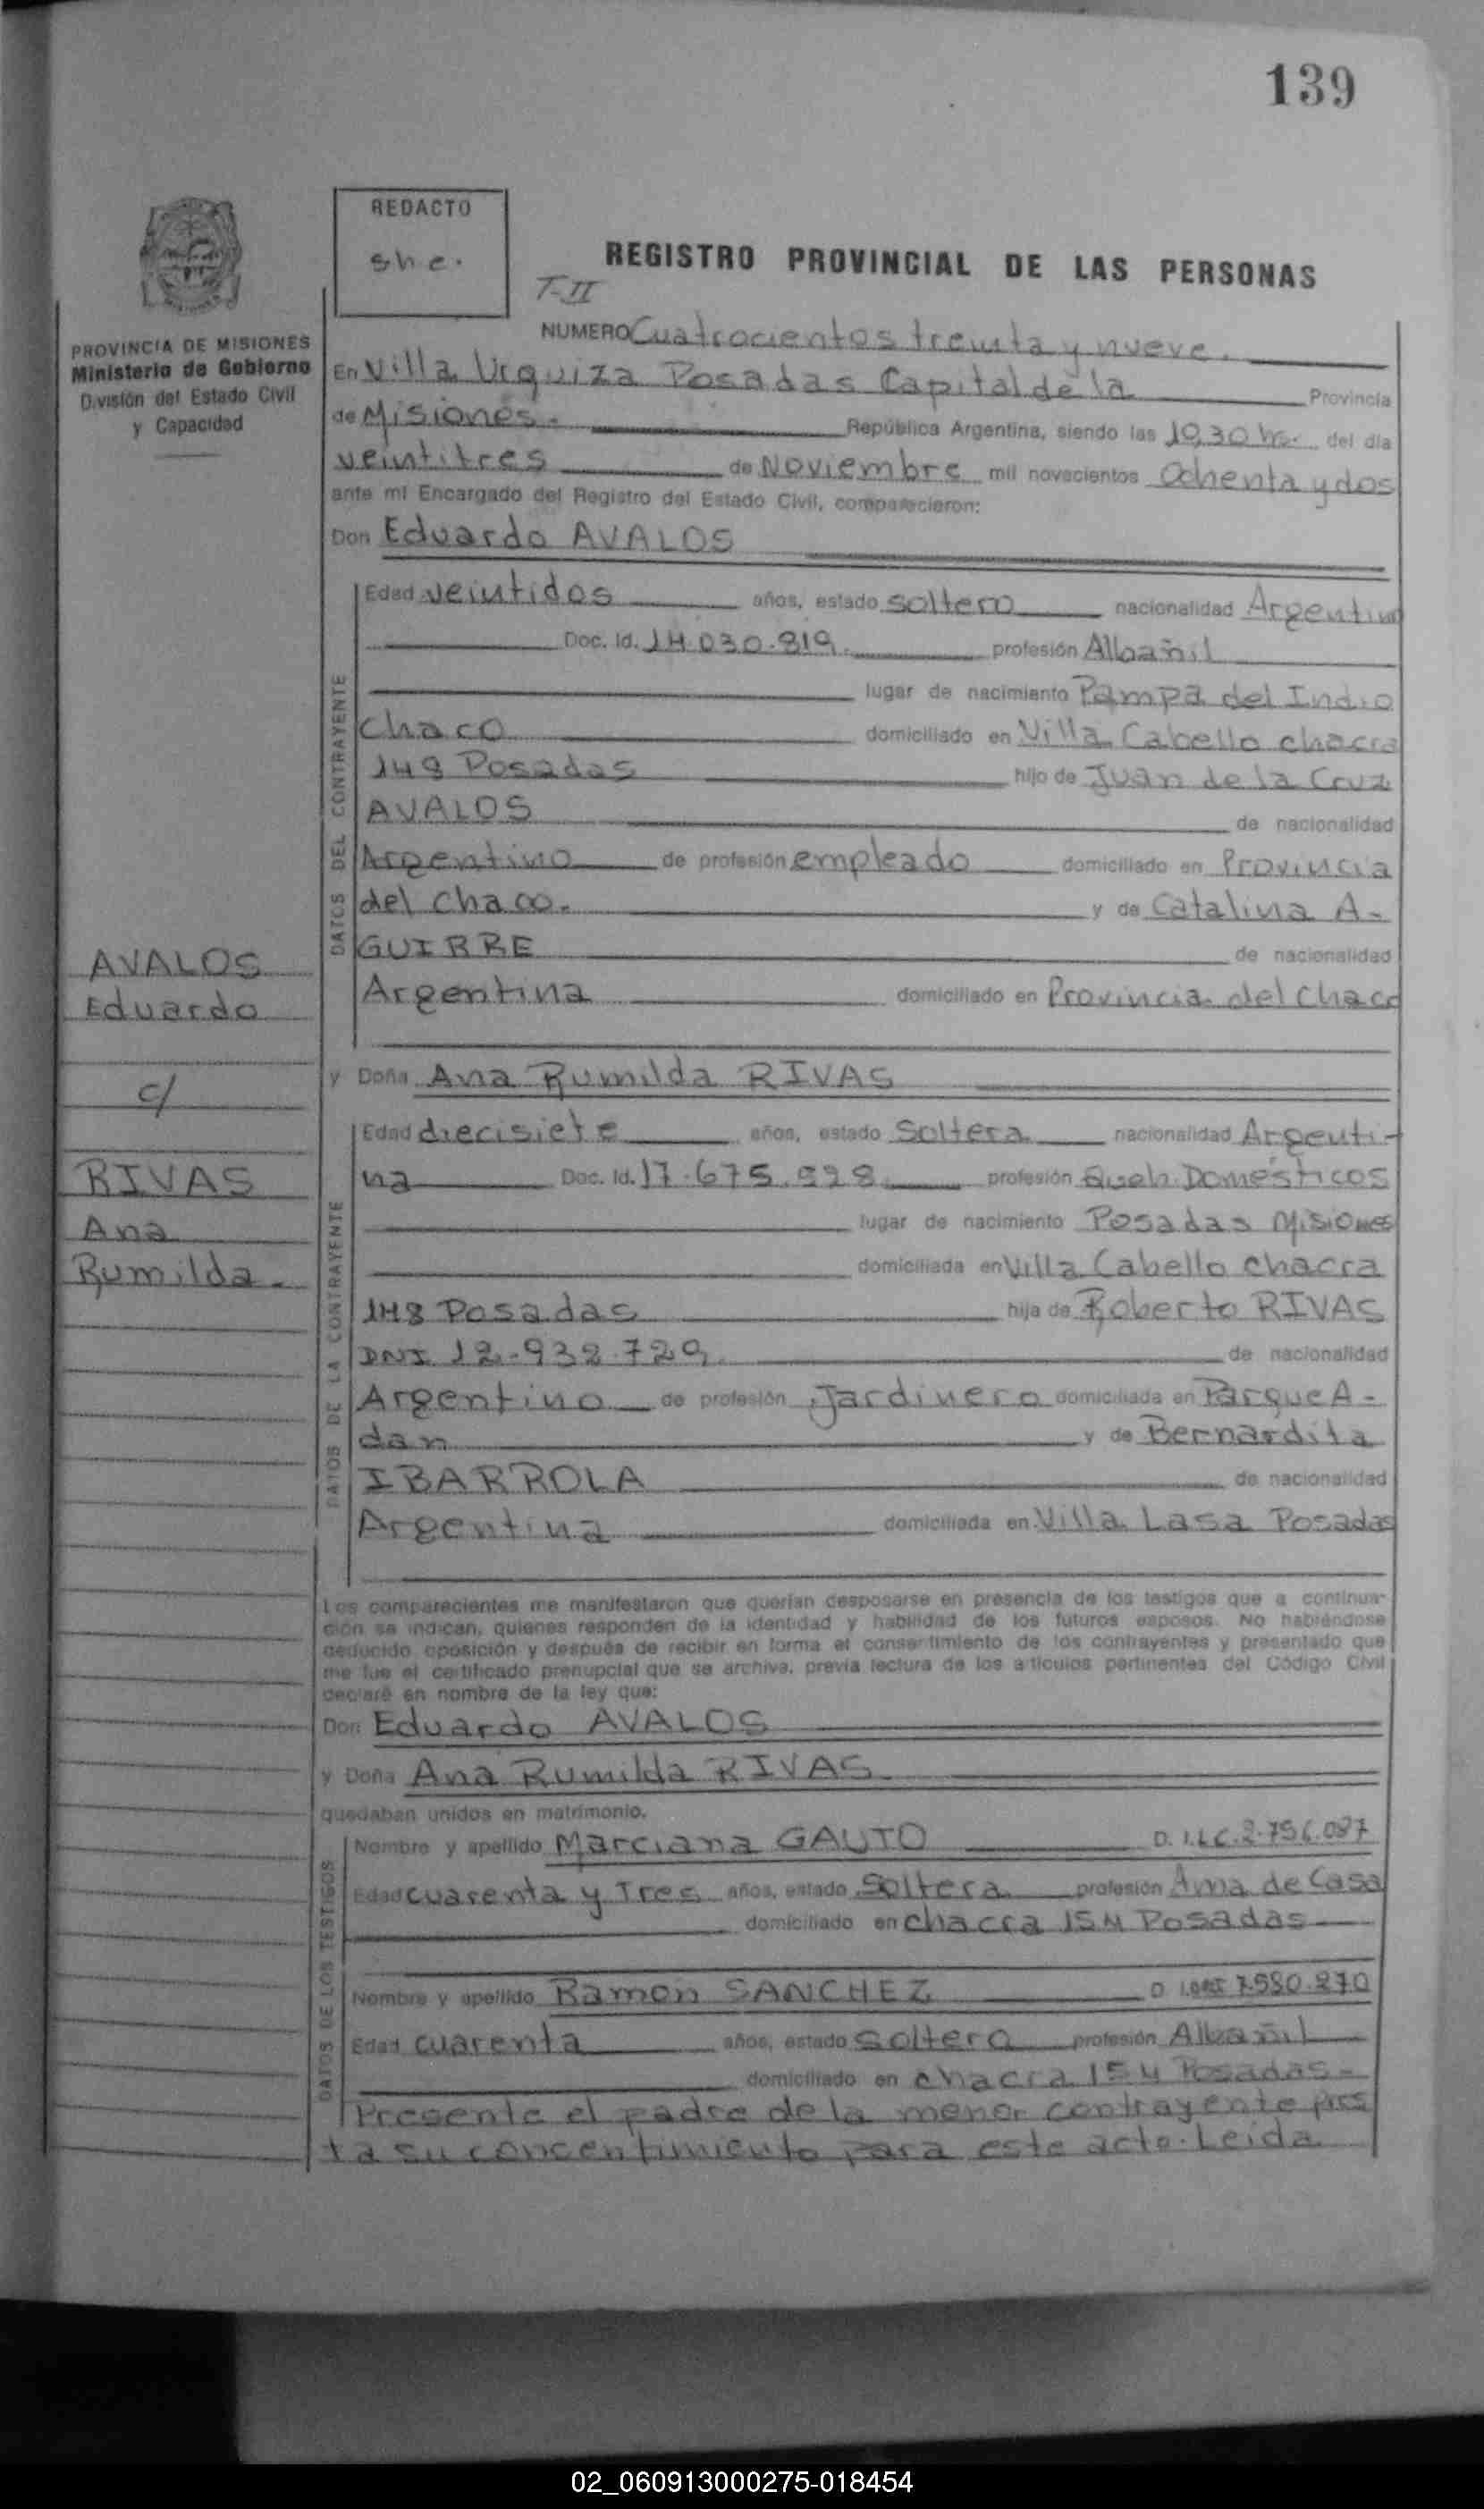 139
REDACTO
she.
REGISTRO PROVINCIAL DE LAS PERSONAS
T-II
PROVINCIA DE MISIONES
Ministerio de Gobierno
División del Estado Civil
y Capacidad
NUMERO Cuatrocientos treinta y nueve.
En Villa Urquiza Posadas Capital de la Provincia
de Misiones. República Argentina, siendo las 19,30 hs. del día
veintitres de Noviembre mil novecientos Ochenta y dos
ante mí Encargado del Registro del Estado Civil, comparecieron:
Don Eduardo AVALOS
DATOS DEL CONTRAYENTE
Edad veintidos años, estado soltero nacionalidad Argentino
Doc. Id. 14.030.819. profesión Albañil
lugar de nacimiento Pampa del Indio
Chaco domiciliado en Villa Cabello chacra
148 Posadas hijo de Juan de la Cruz
AVALOS de nacionalidad
Argentino de profesión empleado domiciliado en Provincia
del Chaco. y de Catalina A-
GUIRRE de nacionalidad
Argentina domiciliado en Provincia del Chaco
AVALOS
Eduardo
c/
RIVAS
Ana
Rumilda.
y Doña Ana Rumilda RIVAS
DATOS DE LA CONTRAYENTE
Edad diecisiete años, estado Soltera nacionalidad Argenti-
na Doc. Id. 17.675.928 profesión Queh. Domésticos
lugar de nacimiento Posadas Misiones
domiciliada en Villa Cabello chacra
148 Posadas hija de Roberto RIVAS
DNI 12.932.729. de nacionalidad
Argentino de profesión Jardinero domiciliada en Parque A-
dan y de Bernardita
IBARROLA de nacionalidad
Argentina domiciliada en Villa Lasa Posadas
Los comparecientes me manifestaron que querían desposarse en presencia de los testigos que a continua-
ción se indican, quienes responden de la identidad y habilidad de los futuros esposos. No habiéndose
deducido oposición y después de recibir en forma el consentimiento de los contrayentes y presentado que
me fue el certificado prenupcial que se archiva, previa lectura de los artículos pertinentes del Código Civil
declaré en nombre de la ley que:
Don Eduardo AVALOS
y Doña Ana Rumilda RIVAS
quedaban unidos en matrimonio.
DATOS DE LOS TESTIGOS
Nombre y apellido Marciana GAUTO D. I. LC. 2.756.087
Edad cuarenta y Tres años, estado Soltera profesión Ama de Casa
domiciliado en chacra 154 Posadas
Nombre y apellido Ramon SANCHEZ D. I. DNI 7.580.270
Edad cuarenta años, estado soltero profesión Albañil
domiciliado en chacra 154 Posadas-
Presente el padre de la menor contrayente pres
ta su concentimiento para este acto. Leida
02_060913000275-018454